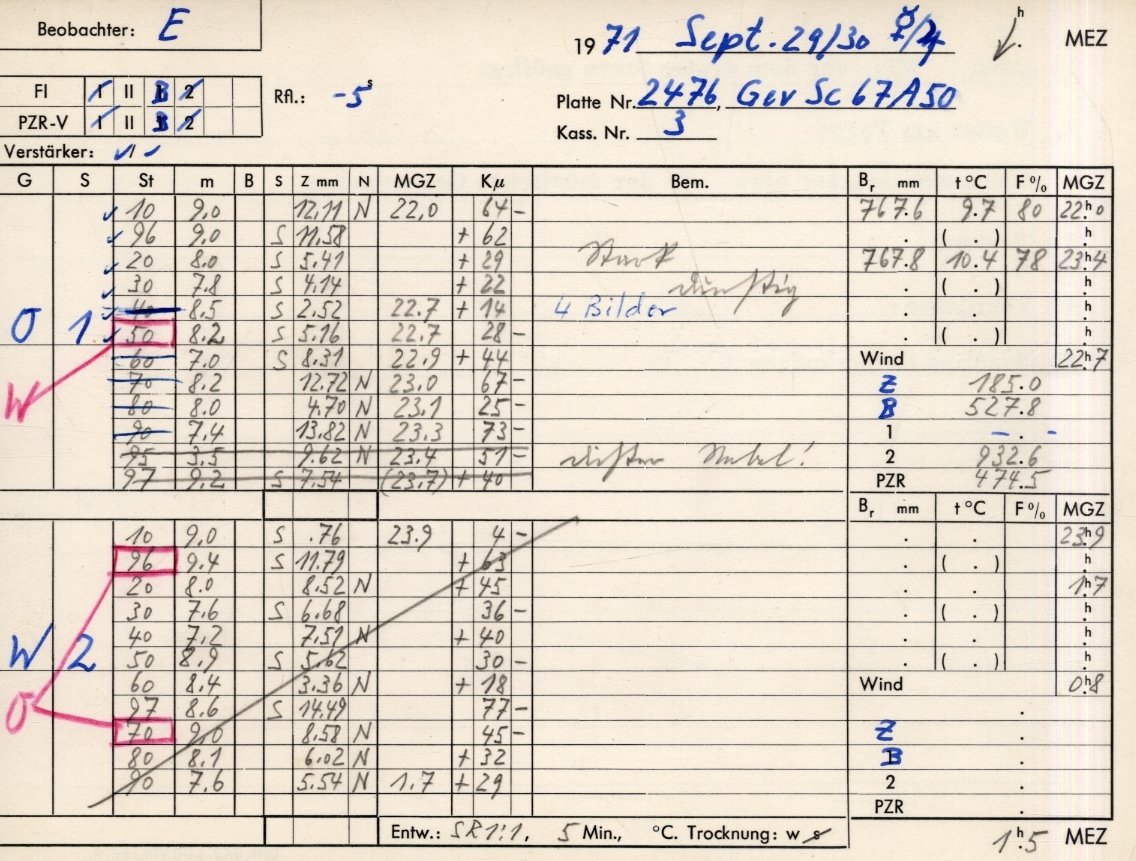 Beobachter: E
19 71 Sept. 29/30 ☿/4 h MEZ
FI I II B 2 Rfl.: -5 s Platte Nr. 2476, Gev Sc 67A50
PZR-V I II 3 2 Kass. Nr. 3
Verstärker: ✓ / ✓
G S St m B S Z mm N MGZ Kμ Bem. Br mm t °C F % MGZ
✓ 10 9,0 12,11 N 22,0 64 - 767.6 9.7 80 22h0
✓ 96 9,0 S 11,58 + 62 . ( . ) h
✓ 20 8.0 S 5.41 + 29 Stark 767.8 10.4 78 23h4
✓ 30 7.8 S 4.14 + 22 dunstig . ( . ) h
✓ 40 8.5 S 2.52 22.7 + 14 4 Bilder . . h
O 1 ✓ 50 8.2 S 5.16 22.7 28 - . ( . ) h
60 7.0 S 8.31 22.9 + 44 Wind 22h7
70 8.2 12.72 N 23.0 67 - Z 185.0
W 80 8.0 4.70 N 23.1 25 - B 527.8
90 7.4 13.82 N 23.3 73 - 1 - . -
95 3.5 9.62 N 23.4 51 - dichter Nebel! 2 932.6
97 9.2 S 7.54 (23.7) + 40 PZR 474.5
Br mm t °C F % MGZ
10 9,0 S .76 23.9 4 - . . 23h9
96 9.4 S 11.79 + 63 . ( . ) h
20 8.0 8.52 N + 45 . . 1h7
30 7.6 S 6.68 36 - . ( . ) h
40 7.2 7.51 N + 40 . . h
W 2 50 8.9 S 5.62 30 - . ( . ) h
60 8.4 3.36 N + 18 Wind 0h8
O 97 8.6 S 14.49 77 - .
70 9.0 8.58 N 45 - Z .
80 8.1 6.02 N + 32 B .
90 7.6 5.54 N 1.7 + 29 2 .
PZR .
Entw.: SR 1:1, 5 Min., °C. Trocknung: w s 1h5 MEZ